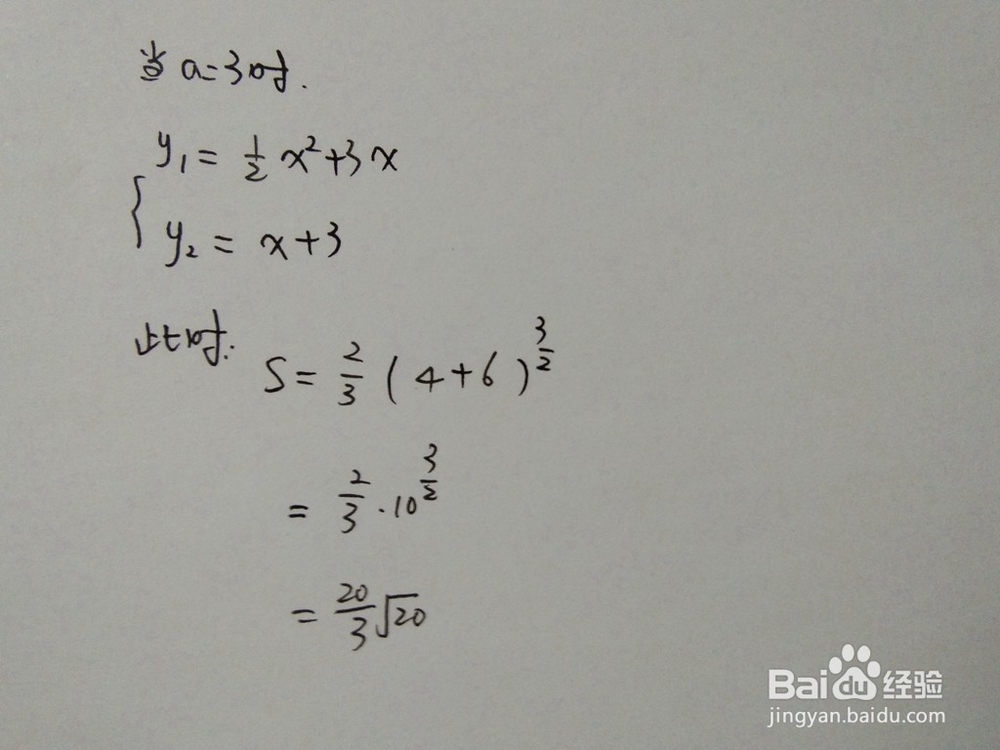 当a=3时.
y₁= 1/2 x²+3x
{
y₂= x+3
此时:
S= 2/3 (4+6)^(3/2)
= 2/3 ·10^(3/2)
= 20/3 √20
Baidu经验
jingyan.baidu.com